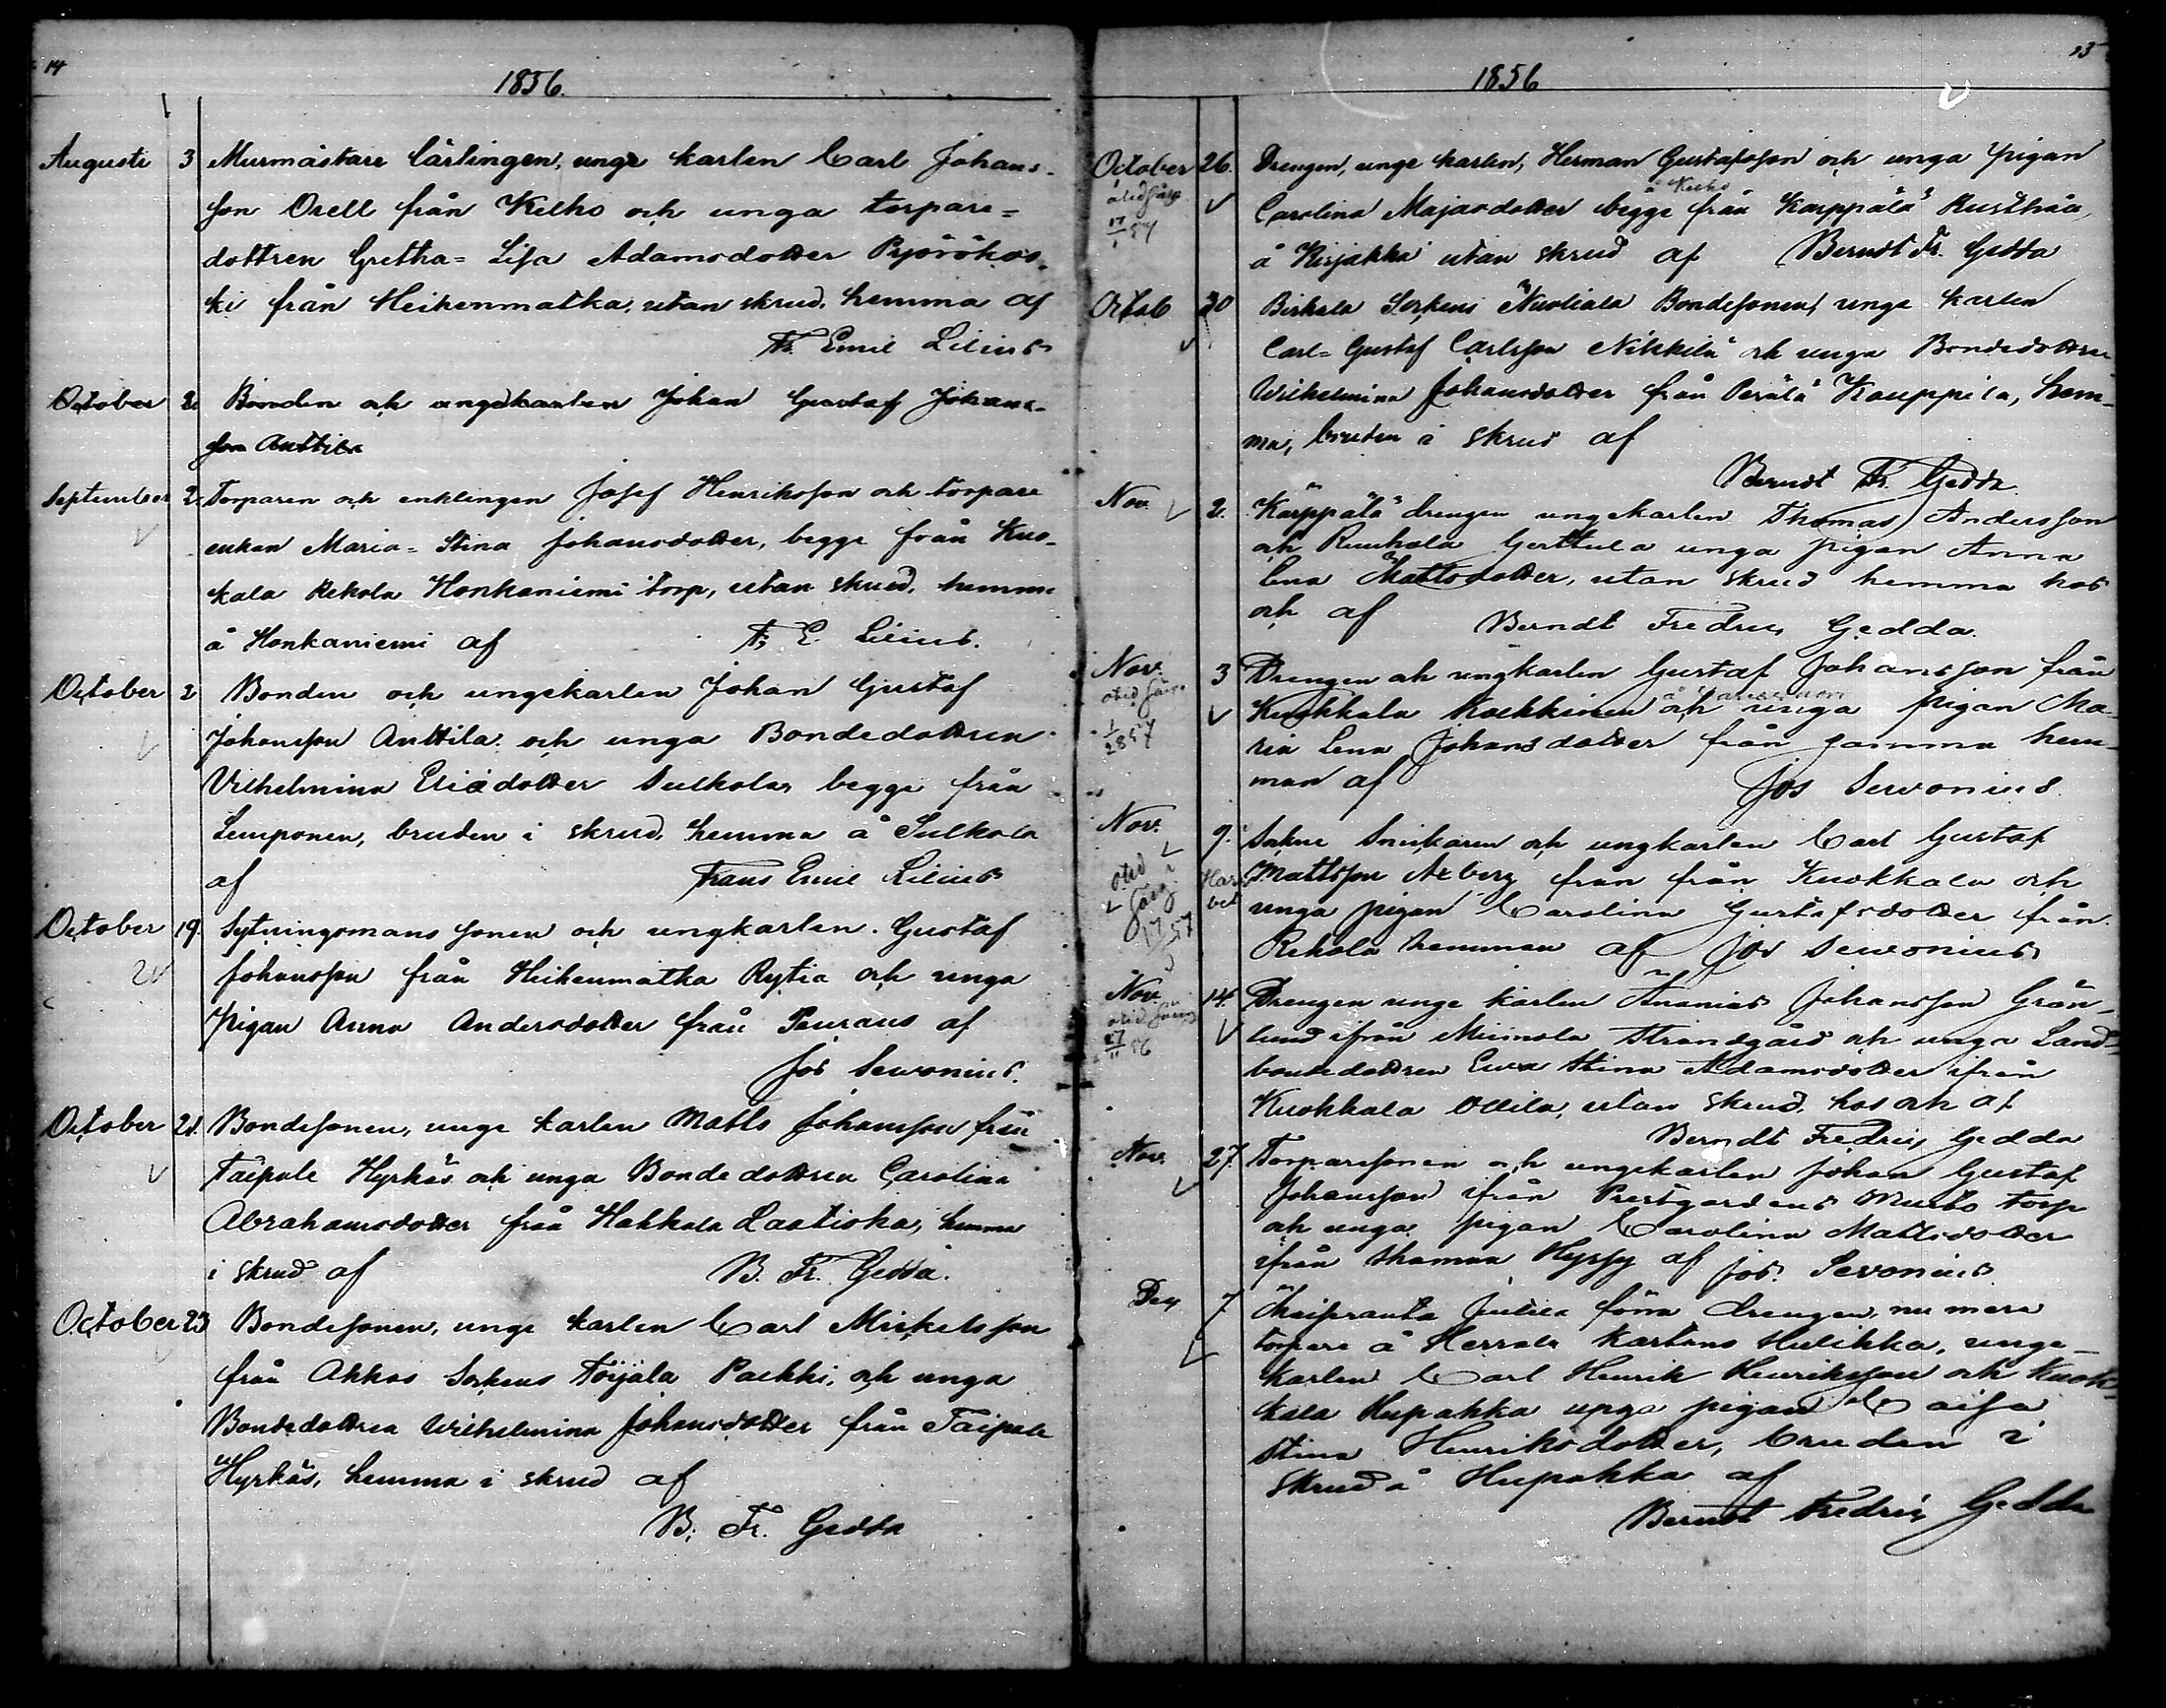 14
1856.
Augusti 3 Murmästare lärlingen, unge karlen Carl Johans-
son Orell från Kelho och unga torpare=
dottren Gretha=Lisa Adamsdotter Pyörökos-
ki från Heikenmatka, utan skrud, hemma af
Fr. Emil Lilius
October 2. Bonden och ungekarlen Johan Gustaf Johans-
son Anttila
September 2. Torparen och enklingen Josef Henriksson och torpare
enkan Maria=Stina Johansdotter, begge från Kuo-
kala Rekola Honkaniemi torp, utan skrud, hemma
å Honkaniemi af Fr. E. Lilius.
October 2 Bonden och ungekarlen Johan Gustaf
Johansson Anttila och unga Bondedottren
Vilhelmina Eliædotter Sulkola, begge från
Lemponen, bruden i skrud, hemma å Sulkola
af Frans Emil Lilius
October 19. Sytningsmans sonen och ungkarlen Gustaf
Johansson från Heikenmatka Rytia och unga
pigan Anna Andersdotter från Pauraus af
Jos Sevonius.
October 21. Bondesonen, unge karlen Matts Johansson från
Taipale Hyrkäs och unga Bondedottren Carolina
Abrahamsdotter från Hakkala Laatioka, hemma
i skrud af B. Fr. Gedda.
October 23 Bondesonen, unge karlen Carl Mickelsson
från Akkas Sockens Toijala Paekki, och unga
Bondedottren Wilhelmina Johansdotter från Taipale
Hyrkäs, hemma i skrud af
B. Fr. Gedda
1856
October 26. Drengen, unge karlen, Herman Gustafsson och unga pigan
Carolina Majasdotter begge från Karppälä
å Kirjakka utan skrud af Berndt Fr. Gedda
Octob 30 Birkala Sockens Nuoliala Bondesonen, unge karlen
Carl=Gustaf Carlsson Nikkilä och unga Bondedottren
Wilhelmina Johansdotter från Perälä Kauppila, hem-
ma, bruden i skrud af
Berndt Fr. Gedda.
Nov. 2. Karppälä drengen ungekarlen Thomas Andersson
och Ruuhola Gerttula unga pigan Anna
Lena Mattsdotter, utan skrud hemma hos
och af Berndt Fredric Gedda.
Nov. 3 Drengen och ungkarlen Gustaf Johansson från
Kuokkala och unga pigan Ma-
ria Lena Johansdotter från samma hem-
man af Jos Sevonius.
Nov. 9. Sockne Snickaren och ungkarlen Carl Gustaf
Mattsson Axberg från från Kuokkala och
unga pigan Carolina Gustafsdotter från
Rekola hemman af Jos Sevonius
Nov. 14. Drengen unge karlen Ananias Johansson Grön-
lund ifrån Miemola Strandgård och unga Land-
bondedottren Eva Stina Adamsdotter ifrån
Kuokkala Ollila, utan skrud, hos och af
Berndt Fredric Gedda
Nov. 27. Torparesonen och ungekarlen Johan Gustaf
Johansson ifrån Prestgårdens Musto torp
och unga pigan Carolina Mattsdotter
ifrån Hyssy af Jos. Sevonius.
Dec 7 Jutila förra drengen, nu mera
torpare å Herrala Kartano Hulikka, unge-
karlen Carl Henrik Henriksson och Kuok-
kala Hupakka unga pigan Caisa
Stina Henriksdotter, bruden i
skrud å Hupakka af
Berndt Fredric Gedda